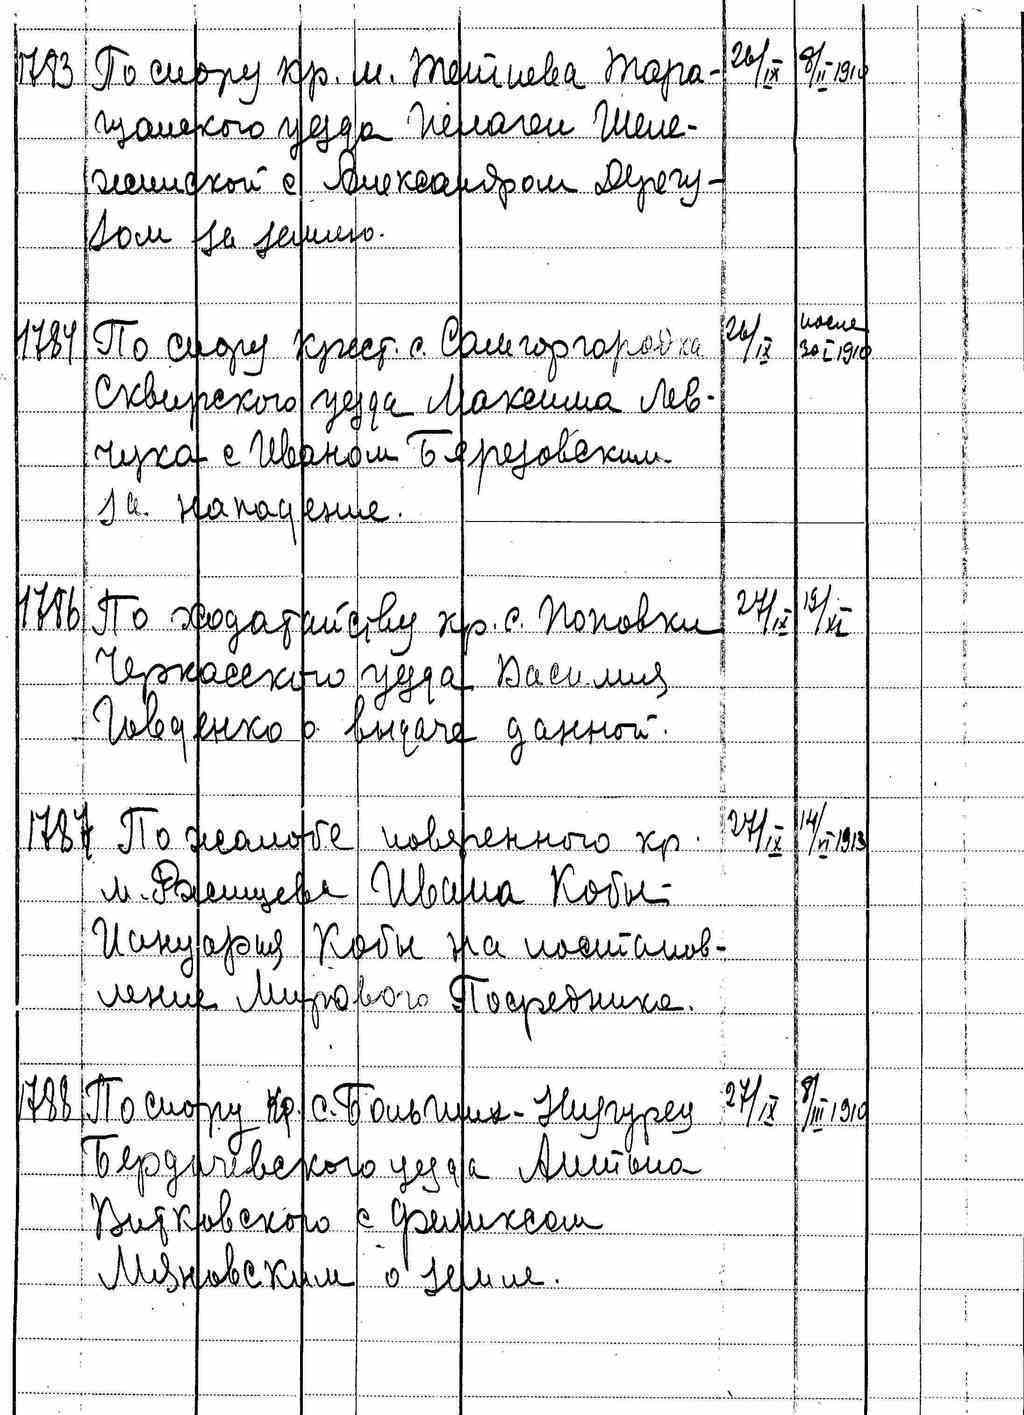 1783 По спору кр. м. Тетиева Тара- 26/IX 8/II 1910
щанского уезда Пелагеи Шеле-
жинской с Александром Дерегу-
зом за землю.
1784 По спору крест. с. Самгородка 26/IX после 30 I 1910
Сквирского уезда Максима Лев-
чука с Иваном Березовским
за нападение.
1786 По ходатайству кр. с. Поповки 27/IX 19/XI
Черкасского уезда Василия
о выдаче данной.
1787 По жалобе поверенного кр. 27/IX 14/VI 1913
м. Ржищева Ивана Кобы-
Иануария Кобы на постанов-
ление Мирового Посредника.
1788 По спору кр. с. Больших-Низгурец 27/IX 8/III 1910
Бердичевского уезда Антона
Витковского с Феликсом
Мяновским о земле.